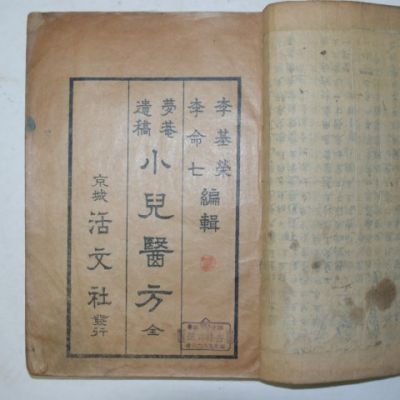 李基榮
李命七
編輯
夢菴
遺稿
小兒醫方 全
京城 活文社 發行